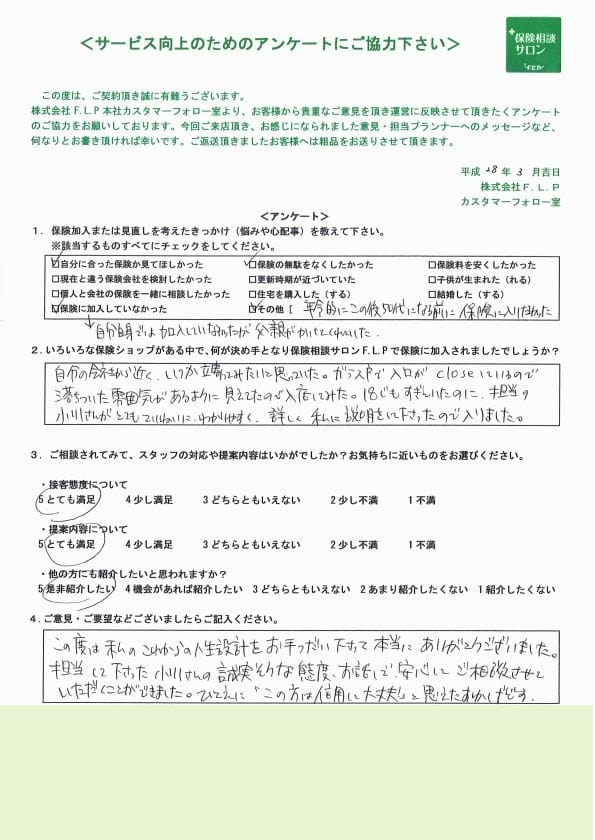 ＜サービス向上のためのアンケートにご協力下さい＞
保険相談
サロン
この度は、ご契約頂き誠に有難うございます。
株式会社F.L.P本社カスタマーフォロー室より、お客様から貴重なご意見を頂き運営に反映させて頂きたくアンケート
のご協力をお願いしております。今回ご来店頂き、お感じになられました意見・担当プランナーへのメッセージなど、
何なりとお書き頂ければ幸いです。ご返送頂きましたお客様へは粗品をお送りさせて頂きます。
平成 28 年 3 月吉日
株式会社F.L.P
カスタマーフォロー室
＜アンケート＞
1．保険加入または見直しを考えたきっかけ（悩みや心配事）を教えて下さい。
※該当するものすべてにチェックをしてください。
□自分に合った保険か見てほしかった □保険の無駄をなくしたかった □保険料を安くしたかった
□現在と違う保険会社を検討したかった □更新時期が近づいていた □子供が生まれた（れる）
□個人と会社の保険を一緒に相談したかった □住宅を購入した（する） □結婚した（する）
□保険に加入していなかった □その他［ 年令的にこの後50代になる前に保険に入りたかった
↓自分自身では加入していなかったが父親がかけてくれていた.
2．いろいろな保険ショップがある中で、何が決め手となり保険相談サロンF.L.Pで保険に加入されましたでしょうか？
自分の会社から近く、いつか立寄ってみたいと思っていた。ガラス戸で入口がcloseしているので
落ちついた雰囲気があるように見えてたので入店してみた。18じもすぎていたのに、担当の
小川さんがとてもていねいに、わかりやすく、詳しく私に説明をして下さったので入りました。
3．ご相談されてみて、スタッフの対応や提案内容はいかがでしたか？お気持ちに近いものをお選びください。
・接客態度について
5とても満足 4少し満足 3どちらともいえない 2少し不満 1不満
・提案内容について
5とても満足 4少し満足 3どちらともいえない 2少し不満 1不満
・他の方にも紹介したいと思われますか？
5是非紹介したい 4機会があれば紹介したい 3どちらともいえない 2あまり紹介したくない 1紹介したくない
4．ご意見・ご要望などございましたらご記入ください。
この度は私のこれからの人生設計をお手つだい下さって本当にありがとうございました。
担当して下さった小川さんの誠実そうな態度、お話しで、安心してご相談させて
いただくことができました。ひとえに"この方は信用して大丈夫"と思えたおかげです.